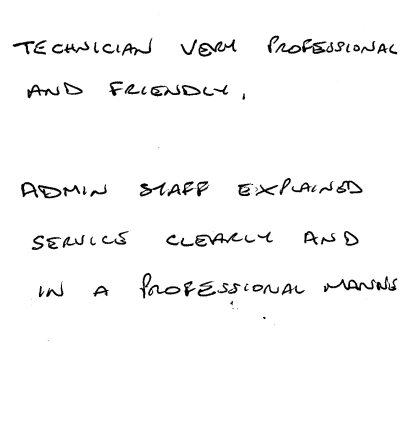 TECHNICIAN VERY PROFESSIONAL
AND FRIENDLY.
ADMIN STAFF EXPLAINED
SERVICE CLEARLY AND
IN A PROFESSIONAL MANNE